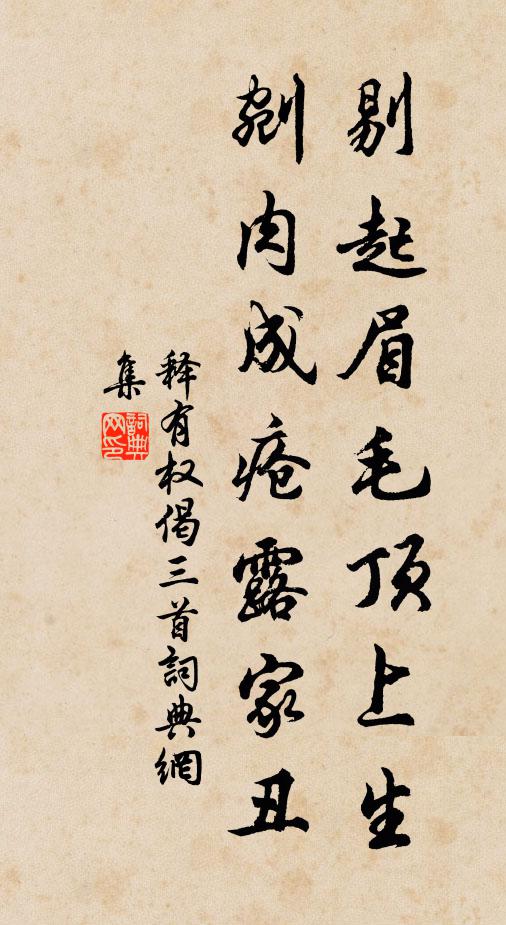 剔起眉毛顶上生
剜肉成疮露家丑
释有权偈三首詞典網
集
詞典
网印